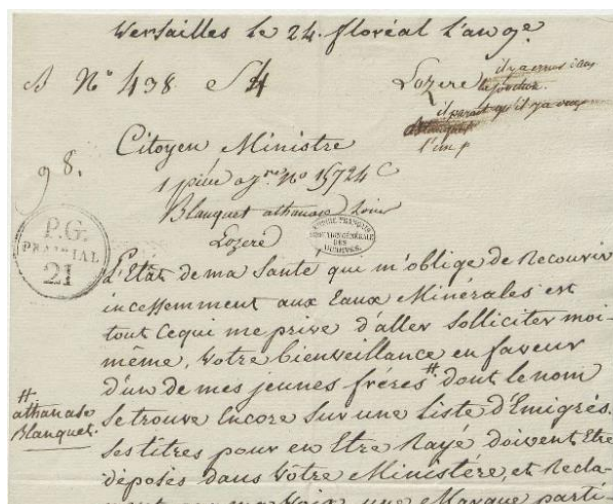 Versailles le 24. floréal l'an 9e.
N° 438 S4
Lozere
il y a erreur dans
il parait qu'il y a
l'un
Citoyen Ministre
98.
1 pièce N° 15724 C
Blanquet athanase Louis
Lozere
P.G.
PRAIRIAL
21
L'Etat de ma Santé que m'oblige de Recourir
incessemment aux Eaux Minérales est
tout cequi me prive d'aller solliciter moi-
même, Votre bienveillance en faveur
d'un de mes jeunes fréres # dont le nom
#
athanase
Blanquet.
Se trouve Encore Sur une liste d'Emigrés.
Ses titres pour en Etre Rayé doivent Etre
déposés dans Vôtre Ministére, et Récla-
une Marque parti-